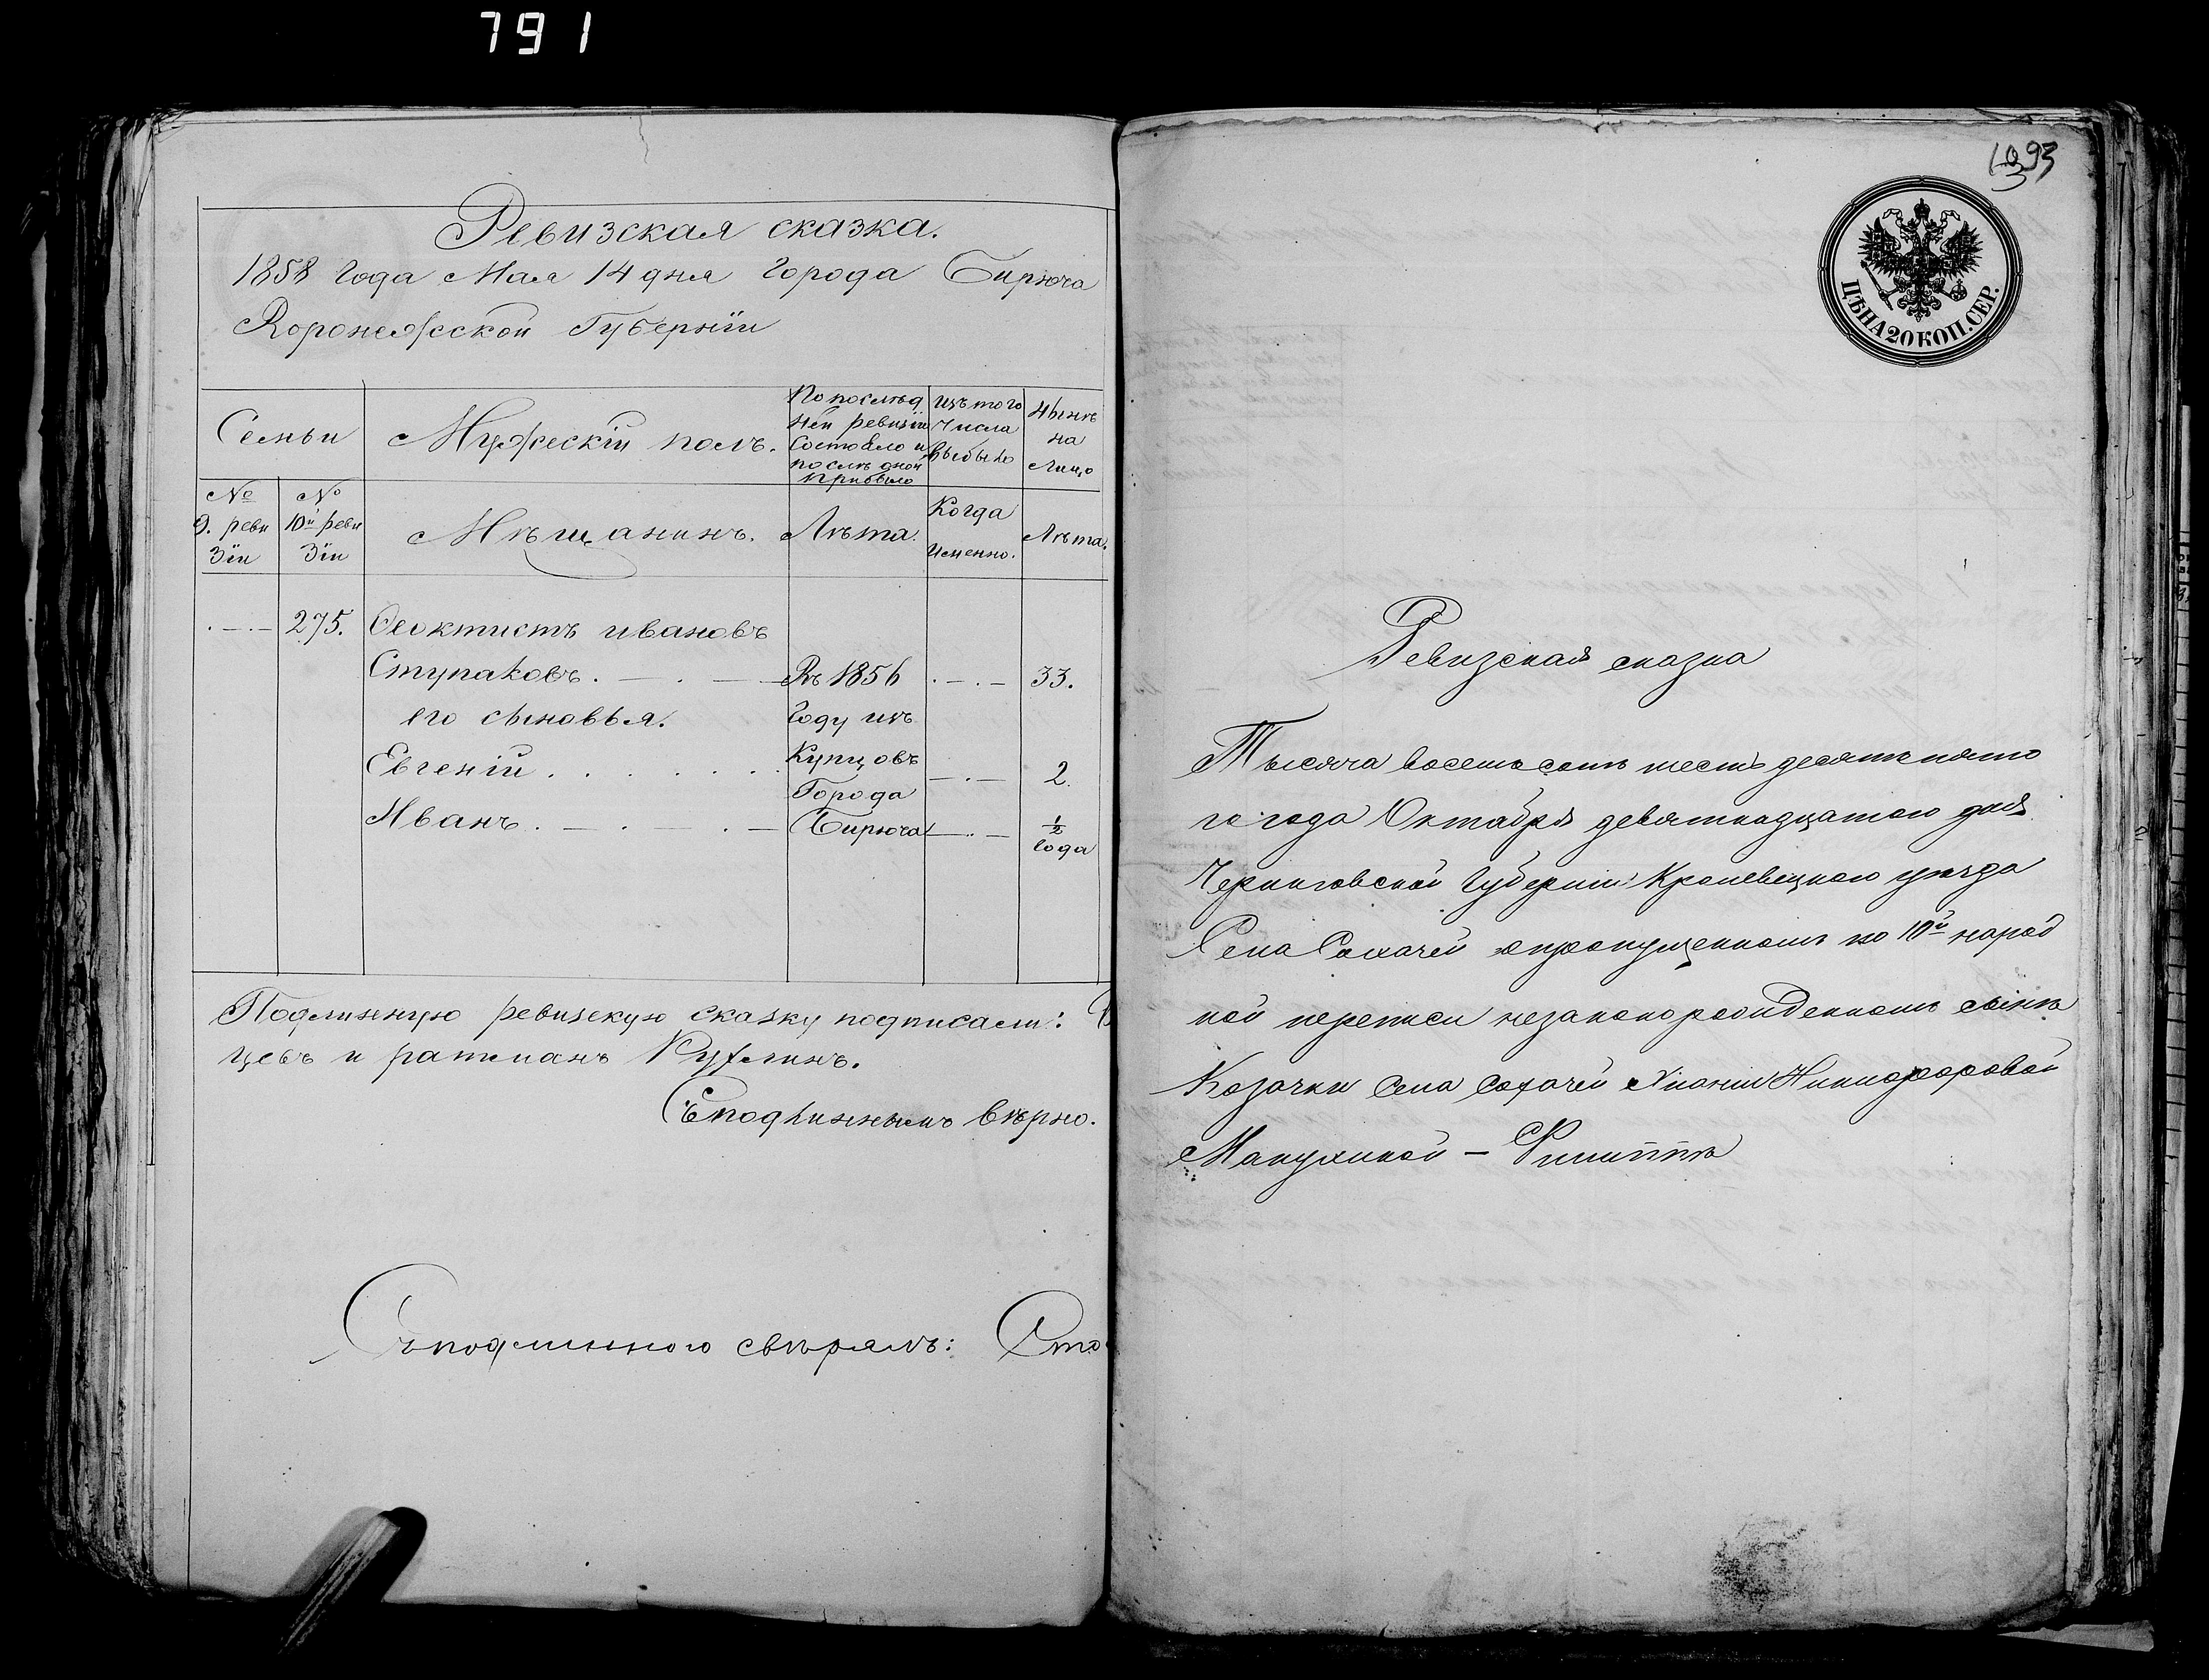 791
Ревизская сказка.
1858 года Мая 14 дня города Бирюча
Воронежской Губерніи
Семьи
Мужескій полъ.
По послѣд
ней ревизіи
состояло и
послѣ оной
прибыло
изъ того
числа
выбыло
Нынѣ
на
лицо
№
9. реви
зіи
№
10й реви
зіи
Мѣщанинъ.
Лѣта.
Когда
именно.
Лѣта.
275. Феоктистъ ивановъ
Ступаковъ. Въ 1856 33.
его сыновья. году изъ
Евгеній купцовъ 2.
Города
Иванъ. Бирюча ½
года
Подлинную ревизскую сказку подписали:
цевъ и ратманъ
Съ подлиннымъ вѣрно.
Съ подлинного свѣрялъ:
1093
ЦѢНА 20 КОП. СЕР.
Ревизская сказка
Тысяча восемь сотъ шесть десятъ пято
го года Октября девятнадцатого дня
Черниговской Губерніи Кролевецкаго уѣзда
Села Сохачей о пропущенномъ по 10й народ
ной переписи незаконорожденномъ сынѣ
Козачки села Сохачей Хионіи Никифоровой
Макухиной — Филиппѣ